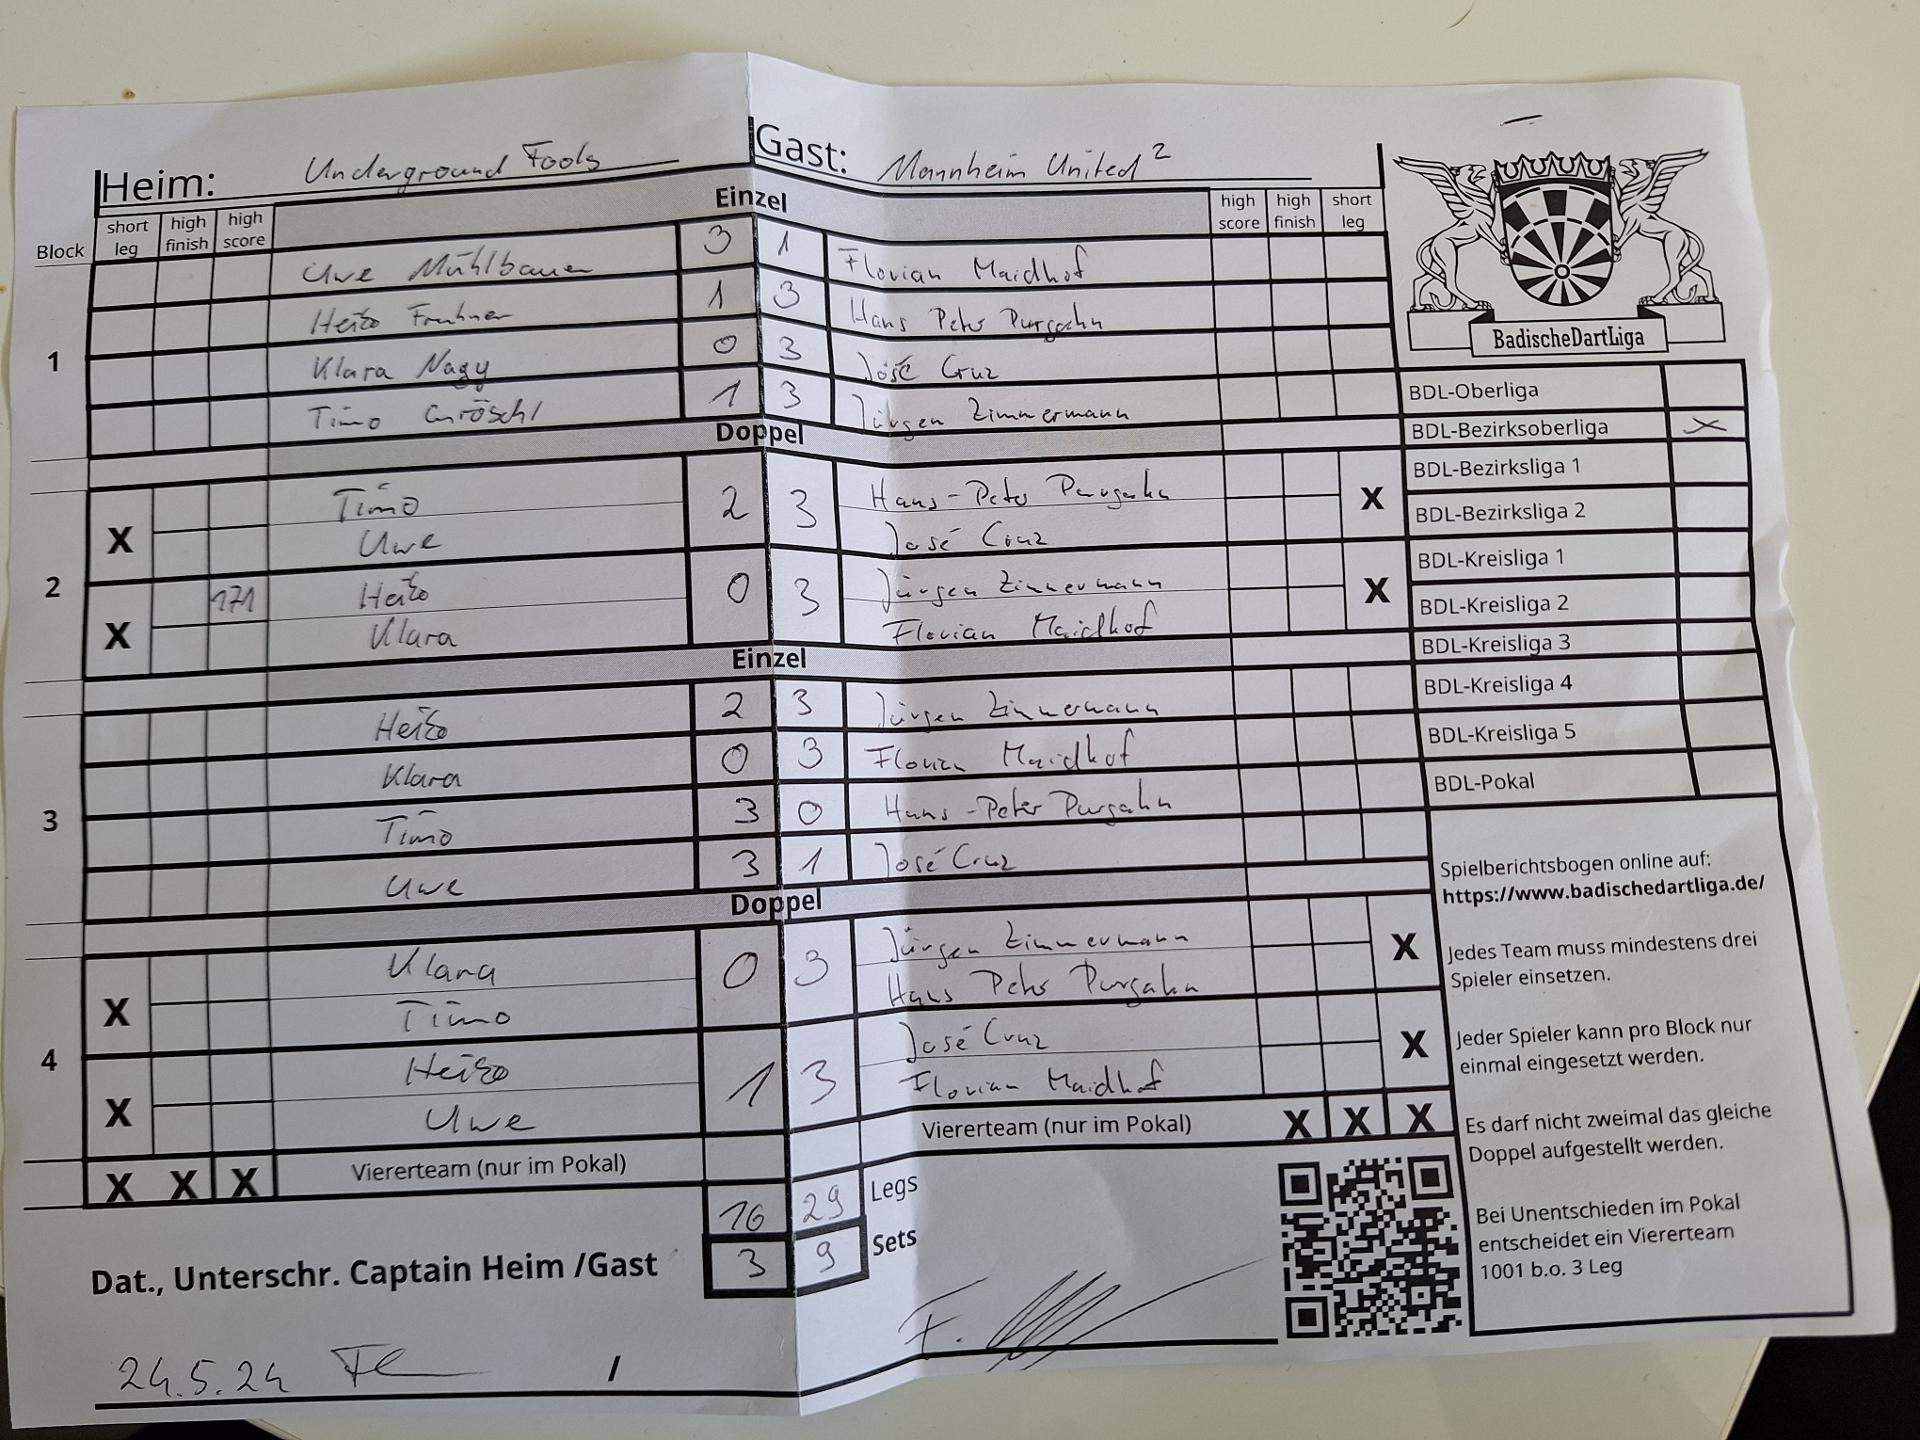 Heim: Underground Fools Gast: Mannheim United 2
Einzel
Block short leg high finish high score high score high finish short leg
1
Uwe Mühlbauer 3 1 Florian Maidhof
Heiko 1 3 Hans Peter Purgahn
Klara Nagy 0 3 José Cruz
Timo Gröschl 1 3 Jürgen Zimmermann
Doppel
2
X Timo 2 3 Hans-Peter Purgahn X
Uwe José Cruz
X 171 Heiko 0 3 Jürgen Zimmermann X
Klara Florian Maidhof
Einzel
3
Heiko 2 3 Jürgen Zimmermann
Klara 0 3 Florian Maidhof
Timo 3 0 Hans-Peter Purgahn
Uwe 3 1 José Cruz
Doppel
4
X Klara 0 3 Jürgen Zimmermann X
Timo Hans Peter Purgahn
X Heiko 1 3 José Cruz X
Uwe Florian Maidhof
X X X Viererteam (nur im Pokal) Viererteam (nur im Pokal) X X X
16 29 Legs
3 9 Sets
Dat., Unterschr. Captain Heim /Gast
24.5.24 / F.
BadischeDartLiga
BDL-Oberliga
BDL-Bezirksoberliga X
BDL-Bezirksliga 1
BDL-Bezirksliga 2
BDL-Kreisliga 1
BDL-Kreisliga 2
BDL-Kreisliga 3
BDL-Kreisliga 4
BDL-Kreisliga 5
BDL-Pokal
Spielberichtsbogen online auf:
https://www.badischedartliga.de/
Jedes Team muss mindestens drei
Spieler einsetzen.
Jeder Spieler kann pro Block nur
einmal eingesetzt werden.
Es darf nicht zweimal das gleiche
Doppel aufgestellt werden.
Bei Unentschieden im Pokal
entscheidet ein Viererteam
1001 b.o. 3 Leg